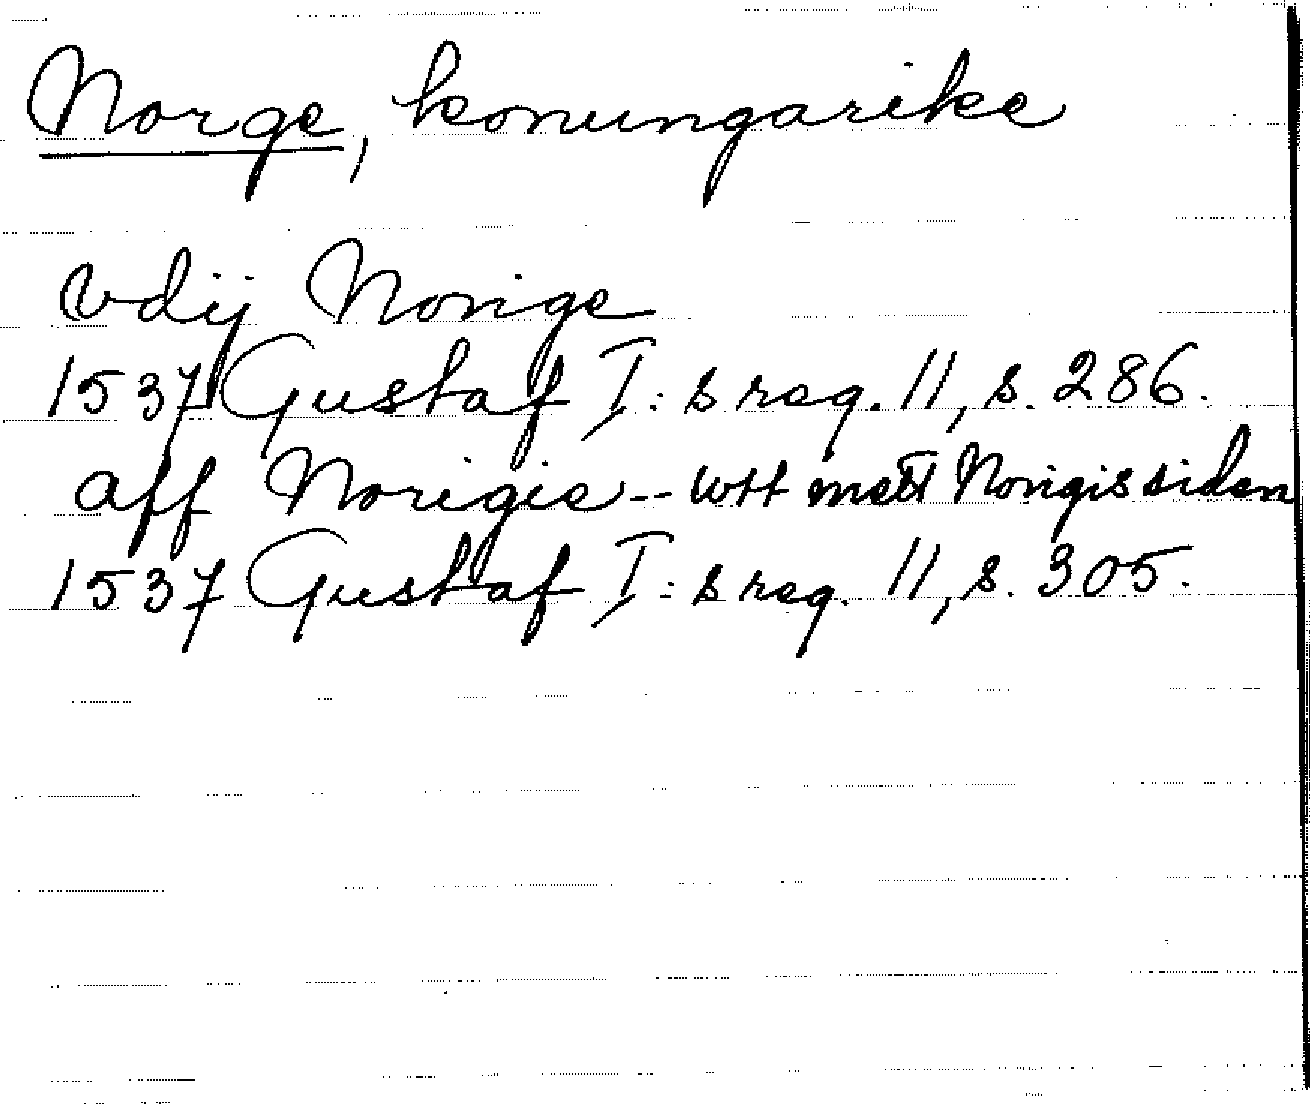 Norge, konungarike
vdij Norige
1537 Gustaf I:s reg. 11, s. 286.
aff Norigie -- wtt mett Norigis siden
1537 Gustaf I:s reg. 11, s. 305.